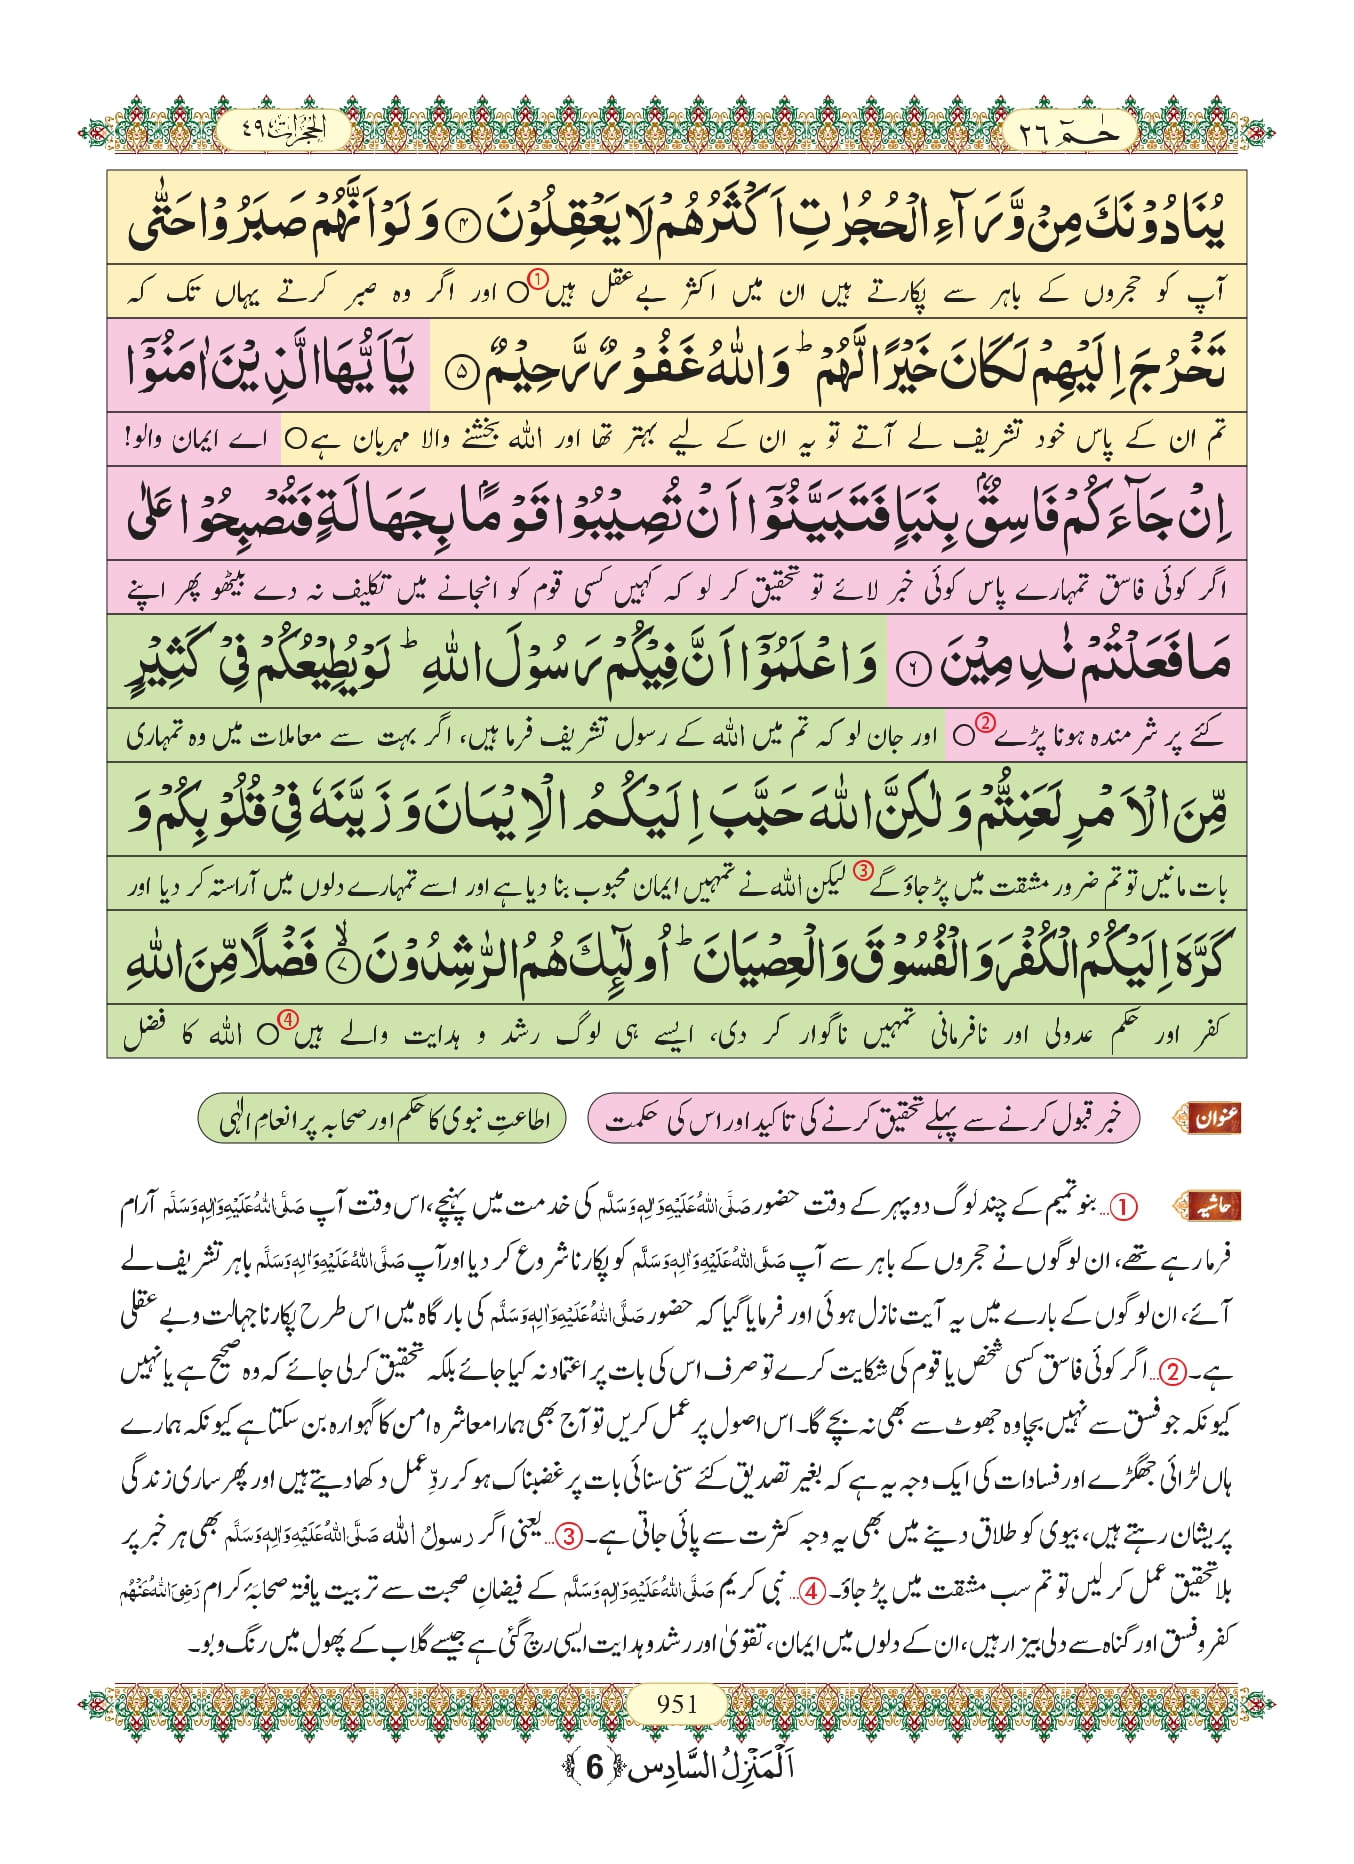 حٰمٓ ٢٦
الحجرات ٤٩
يُنَادُوْنَكَ مِنْ وَّرَآءِ الْحُجُرٰتِ اَكْثَرُهُمْ لَا يَعْقِلُوْنَ ﴿۴﴾ وَ لَوْ اَنَّهُمْ صَبَرُوْا حَتّٰى
آپ کو حجروں کے باہر سے پکارتے ہیں ان میں اکثر بے عقل ہیں① ○ اور اگر وہ صبر کرتے یہاں تک کہ
تَخْرُجَ اِلَيْهِمْ لَكَانَ خَيْرًا لَّهُمْ ؕ وَ اللّٰهُ غَفُوْرٌ رَّحِيْمٌ ﴿۵﴾ يٰۤاَيُّهَا الَّذِيْنَ اٰمَنُوْۤا
تم ان کے پاس خود تشریف لے آتے تو یہ ان کے لیے بہتر تھا اور اللہ بخشنے والا مہربان ہے ○ اے ایمان والو!
اِنْ جَآءَكُمْ فَاسِقٌۢ بِنَبَاٍ فَتَبَيَّنُوْۤا اَنْ تُصِيْبُوْا قَوْمًۢا بِجَهَالَةٍ فَتُصْبِحُوْا عَلٰى
اگر کوئی فاسق تمہارے پاس کوئی خبر لائے تو تحقیق کر لو کہ کہیں کسی قوم کو انجانے میں تکلیف نہ دے بیٹھو پھر اپنے
مَا فَعَلْتُمْ نٰدِمِيْنَ ﴿۶﴾ وَ اعْلَمُوْۤا اَنَّ فِيْكُمْ رَسُوْلَ اللّٰهِ ؕ لَوْ يُطِيْعُكُمْ فِيْ كَثِيْرٍ
کئے پر شرمندہ ہونا پڑے② ○ اور جان لو کہ تم میں اللہ کے رسول تشریف فرما ہیں، اگر بہت سے معاملات میں وہ تمہاری
مِّنَ الْاَمْرِ لَعَنِتُّمْ وَ لٰكِنَّ اللّٰهَ حَبَّبَ اِلَيْكُمُ الْاِيْمَانَ وَ زَيَّنَهٗ فِيْ قُلُوْبِكُمْ وَ
بات مانیں تو تم ضرور مشقت میں پڑ جاؤ گے③ لیکن اللہ نے تمہیں ایمان محبوب بنا دیا ہے اور اسے تمہارے دلوں میں آراستہ کر دیا اور
كَرَّهَ اِلَيْكُمُ الْكُفْرَ وَ الْفُسُوْقَ وَ الْعِصْيَانَ ؕ اُولٰٓىِٕكَ هُمُ الرّٰشِدُوْنَ ﴿۷﴾ۙ فَضْلًا مِّنَ اللّٰهِ
کفر اور حکم عدولی اور نافرمانی تمہیں ناگوار کر دی، ایسے ہی لوگ رشد و ہدایت والے ہیں④ ○ اللہ کا فضل
عنوان خبر قبول کرنے سے پہلے تحقیق کرنے کی تاکید اور اس کی حکمت اطاعتِ نبوی کا حکم اور صحابہ پر انعامِ الٰہی
حاشیہ ①… بنو تمیم کے چند لوگ دوپہر کے وقت حضور صَلَّی اللہُ عَلَیْہِ وَاٰلِہٖ وَسَلَّم کی خدمت میں پہنچے، اس وقت آپ صَلَّی اللہُ عَلَیْہِ وَاٰلِہٖ وَسَلَّم آرام
فرما رہے تھے، ان لوگوں نے حجروں کے باہر سے آپ صَلَّی اللہُ عَلَیْہِ وَاٰلِہٖ وَسَلَّم کو پکارنا شروع کر دیا اور آپ صَلَّی اللہُ عَلَیْہِ وَاٰلِہٖ وَسَلَّم باہر تشریف لے
آئے، ان لوگوں کے بارے میں یہ آیت نازل ہوئی اور فرمایا گیا کہ حضور صَلَّی اللہُ عَلَیْہِ وَاٰلِہٖ وَسَلَّم کی بارگاہ میں اس طرح پکارنا جہالت و بے عقلی
ہے۔ ②… اگر کوئی فاسق کسی شخص یا قوم کی شکایت کرے تو صرف اس کی بات پر اعتماد نہ کیا جائے بلکہ تحقیق کرلی جائے کہ وہ صحیح ہے یا نہیں
کیونکہ جو فسق سے نہیں بچا وہ جھوٹ سے بھی نہ بچے گا۔ اس اصول پر عمل کریں تو آج بھی ہمارا معاشرہ امن کا گہوارہ بن سکتا ہے کیونکہ ہمارے
ہاں لڑائی جھگڑے اور فسادات کی ایک وجہ یہ ہے کہ بغیر تصدیق کئے سنی سنائی بات پر غضبناک ہو کر ردِّ عمل دکھا دیتے ہیں اور پھر ساری زندگی
پریشان رہتے ہیں، بیوی کو طلاق دینے میں بھی یہ وجہ کثرت سے پائی جاتی ہے۔ ③… یعنی اگر رسولُ اللہ صَلَّی اللہُ عَلَیْہِ وَاٰلِہٖ وَسَلَّم بھی ہر خبر پر
بلا تحقیق عمل کر لیں تو تم سب مشقت میں پڑ جاؤ۔ ④… نبی کریم صَلَّی اللہُ عَلَیْہِ وَاٰلِہٖ وَسَلَّم کے فیضانِ صحبت سے تربیت یافتہ صحابۂ کرام رَضِیَ اللہُ عَنْہُم
کفر و فسق اور گناہ سے دلی بیزار ہیں، ان کے دلوں میں ایمان، تقویٰ اور رشد و ہدایت ایسی رچ گئی ہے جیسے گلاب کے پھول میں رنگ و بو۔
951
اَلْمَنْزِلُ السَّادِس ﴿6﴾